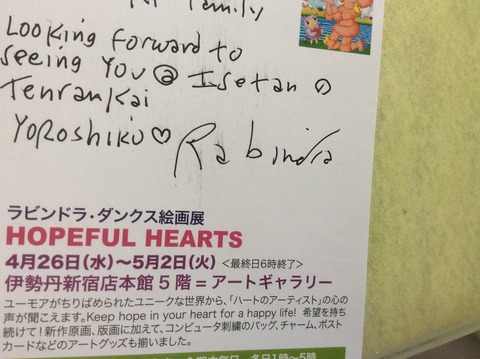 Family
Looking Forward to
seeing You @ Isetan の
Tenrankai
Yoroshiku♡ Rabindra
ラビンドラ・ダンクス絵画展
HOPEFUL HEARTS
4月26日(水)〜5月2日(火) <最終日6時終了>
伊勢丹新宿店本館5階=アートギャラリー
ユーモアがちりばめられたユニークな世界から、「ハートのアーティスト」の心の
声が聞こえます。Keep hope in your heart for a happy life! 希望を持ち
続けて!新作原画、版画に加えて、コンピュータ刺繍のバッグ、チャーム、ポスト
カードなどのアートグッズも揃いました。